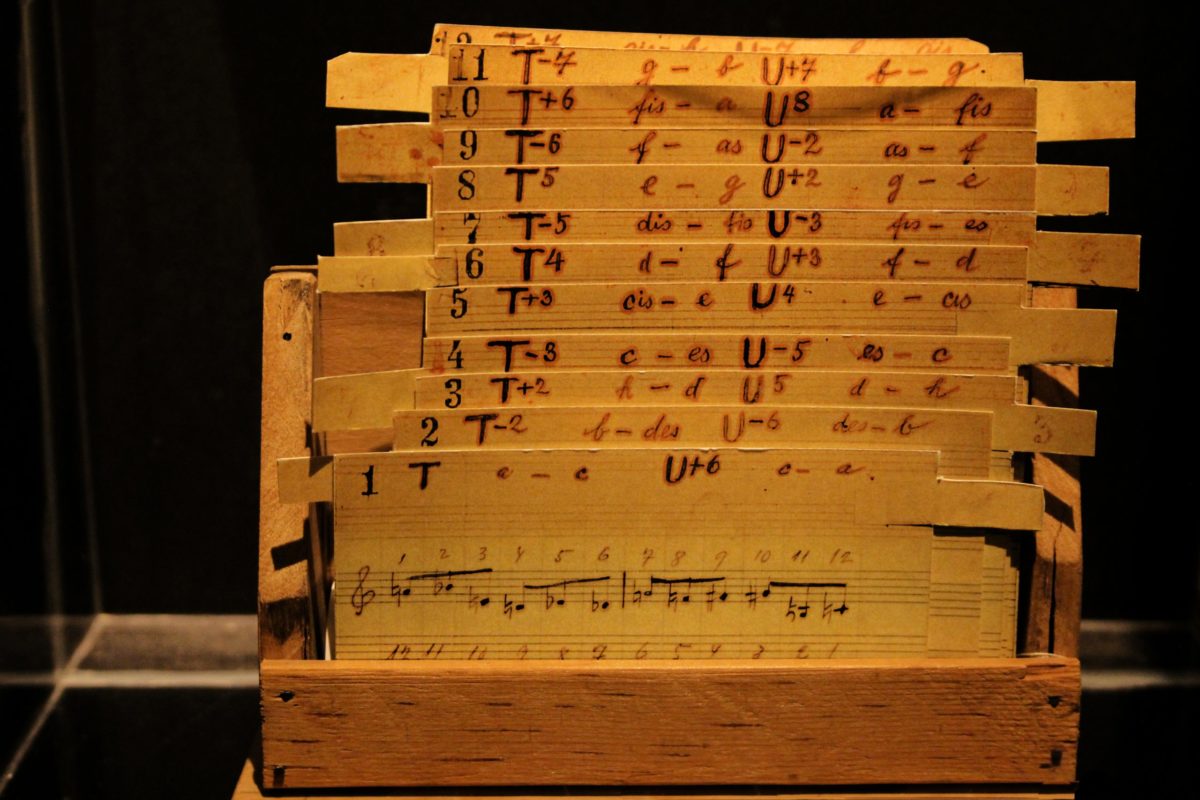 11 T-7 g - b U+7 b - g.
10 T+6 fis - a U8 a - fis
9 T-6 f - as U-2 as - f
8 T5 e - g U+2 g - e
7 T-5 dis - fis U-3 fis - es
6 T4 d - f U+3 f - d
5 T+3 cis - e U4 e - cis
4 T-3 c - es U-5 es - c
3 T+2 h - d U5 d - h
2 T-2 b - des U-6 des - b
1 T a - c U+6 c - a.
1 2 3 4 5 6 7 8 9 10 11 12
12 11 10 9 8 7 6 5 4 3 2 1